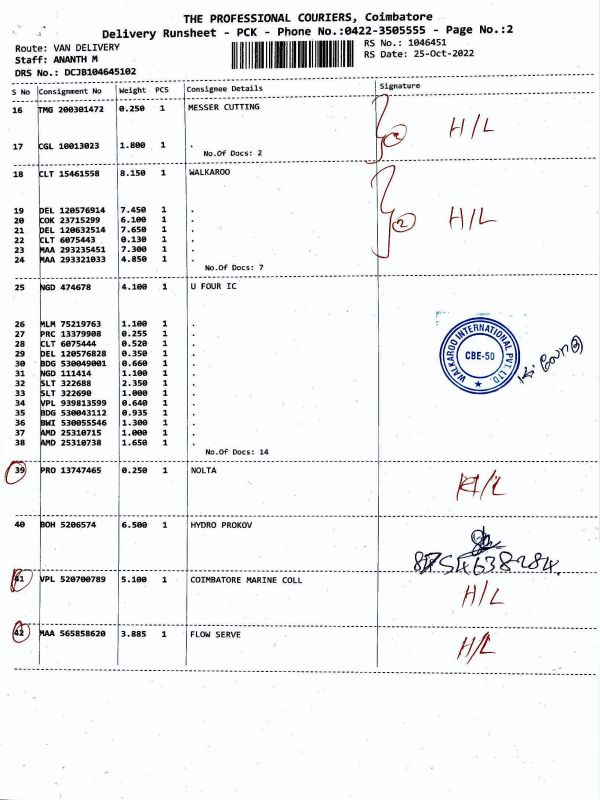 THE PROFESSIONAL COURIERS, Coimbatore
Delivery Runsheet - PCK - Phone No.:0422-3505555 - Page No.:2
Route: VAN DELIVERY
Staff: ANANTH M
DRS No.: DCJB104645102
RS No.: 1046451
RS Date: 25-Oct-2022
S No Consignment No Weight PCS Consignee Details Signature
16 TMG 200301472 0.250 1 MESSER CUTTING
2 H/L
17 CGL 10013023 1.800 1 .
No.Of Docs: 2
18 CLT 15461558 8.150 1 WALKAROO
19 DEL 120576914 7.450 1 .
20 COK 23715299 6.100 1 .
2 H/L
21 DEL 120632514 7.650 1 .
22 CLT 6075443 0.130 1 .
23 MAA 293235451 7.300 1 .
24 MAA 293321033 4.850 1 .
No.Of Docs: 7
25 NGD 474678 4.100 1 U FOUR IC
26 MLM 75219763 1.100 1 .
27 PRC 13379908 0.255 1 .
28 CLT 6075444 0.520 1 .
29 DEL 120576828 0.350 1 .
30 BDG 530049001 0.660 1 .
31 NGD 111414 1.100 1 .
32 SLT 322688 2.350 1 .
33 SLT 322690 1.000 1 .
34 VPL 939813599 0.640 1 .
35 BDG 530043112 0.935 1 .
36 BWI 530055546 1.300 1 .
37 AMD 25310715 1.000 1 .
38 AMD 25310738 1.650 1 .
No.Of Docs: 14
WALKAROO INTERNATIONAL PVT. LTD.
CBE-50
39 PRO 13747465 0.250 1 NOLTA
H/L
40 BOH 5206574 6.500 1 HYDRO PROKOV
8754638284.
41 VPL 520700789 5.100 1 COIMBATORE MARINE COLL
H/L
42 MAA 565858620 3.885 1 FLOW SERVE
H/L